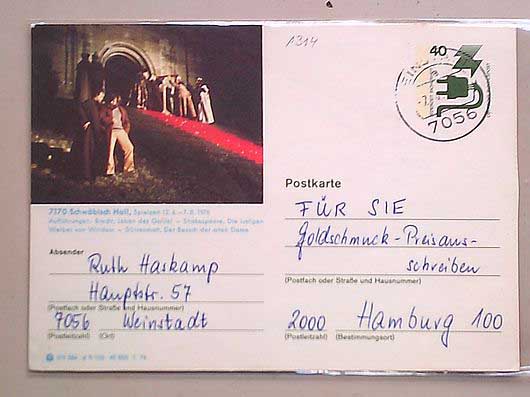 1314
40
7056
7170 Schwäbisch Hall, Spielzeit 12.6.-7.8.1976
Aufführungen: Brecht, Leben des Galilei - Shakespeare, Die lustigen
Weiber von Windsor - Dürrenmatt, Der Besuch der alten Dame
Absender
Ruth Haskamp
Hauptstr. 57
(Postfach oder Straße und Hausnummer)
7056 Weinstadt
(Postleitzahl) (Ort)
Postkarte
FÜR SIE
Goldschmuck-Preisaus-
schreiben
(Postfach oder Straße und Hausnummer)
2000 Hamburg 100
(Postleitzahl) (Bestimmungsort)